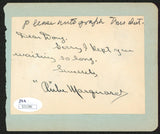 please autograph this slip.
Dear Doug,
Sorry I kept you
waiting so long.
Sincerely,
"Rube" Marquard
JSA